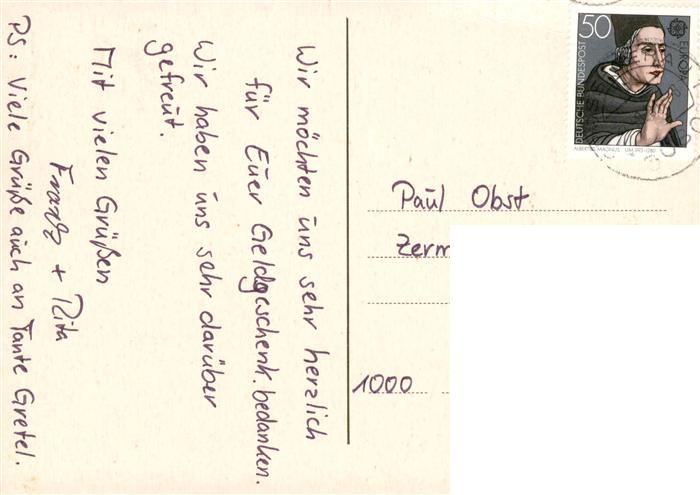 Wir möchten uns sehr herzlich
für Euer Geldgeschenk bedanken.
Wir haben uns sehr darüber
gefreut.
Mit vielen Grüßen
Franz + Rita
PS: Viele Grüße auch an Tante Gretel.
50
DEUTSCHE BUNDESPOST
EUROPA
ALBERTUS MAGNUS UM 1193-1280
Paul Obst
Zerm
1000